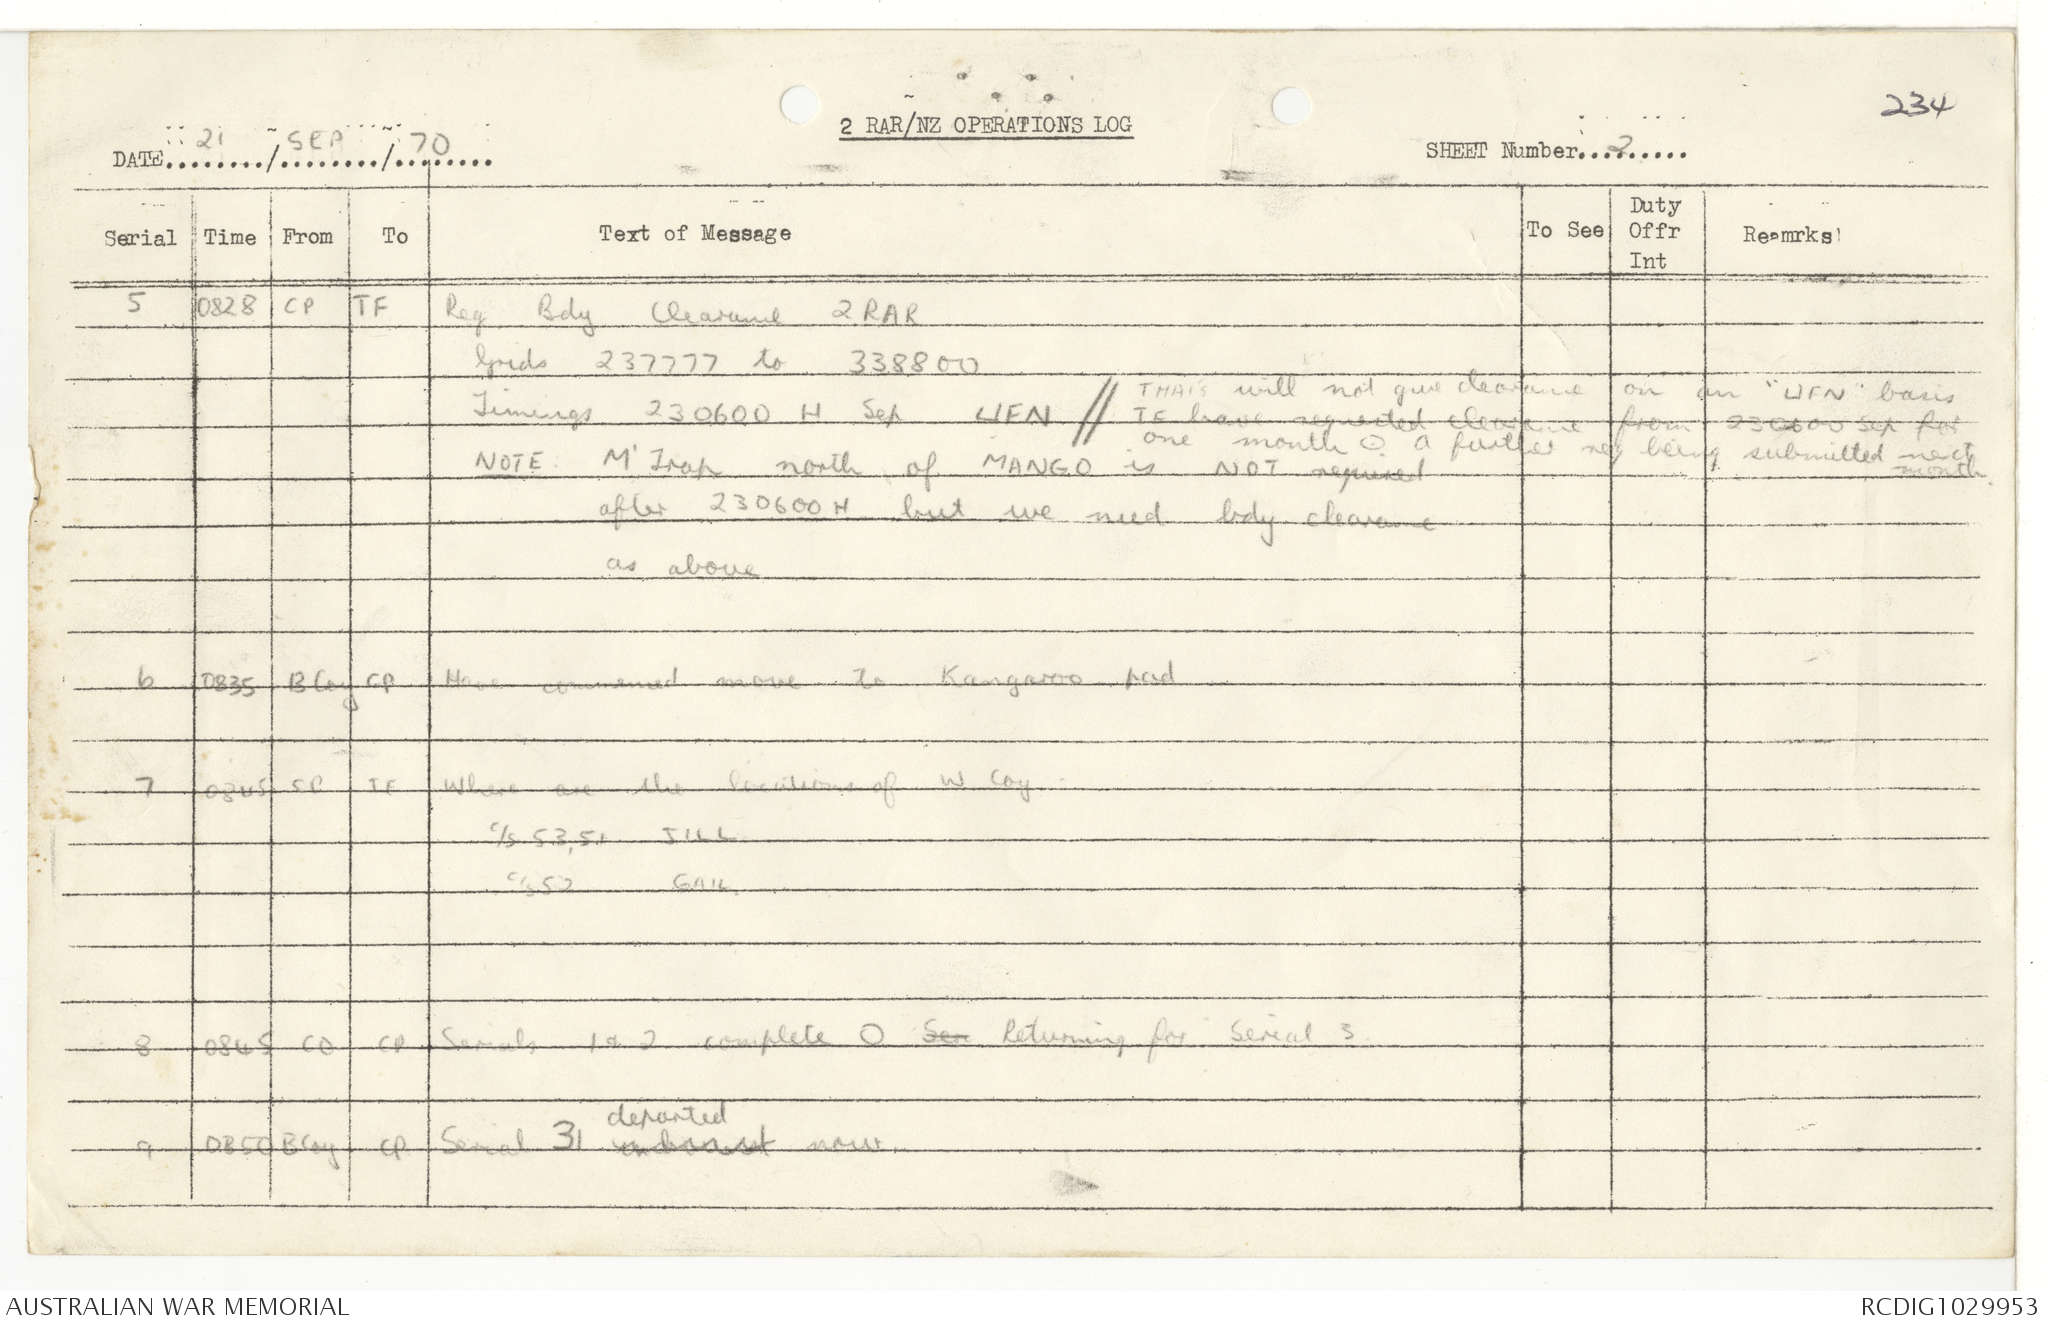 234
2 RAR/NZ OPERATIONS LOG
DATE 21 / SEP / 70
SHEET Number 2
Serial Time From To Text of Message To See Duty Offr Int Reamrks
5 0828 CP TF Req Bdy Clearance 2RAR
Grids 237777 to 338800
Timings 230600 H Sep UFN // THAI's will not give clearance on an "UFN" basis
TF have requested clearance from 230600 Sep for
one month O a further req being submitted next
month.
NOTE M'Trap north of MANGO is NOT required
after 230600H but we need bdy clearance
as above
6 0835 B Coy CP Have commenced move to Kangaroo pad
7 0845 CP TF Where are the locations of W Coy
c/s 53, 51 JILL
c/s 52 GAIL
8 0845 CO CP Serials 1 & 2 complete O Ser Returning for Serial 3
departed
9 0850 B Coy CP Serial 31 now
AUSTRALIAN WAR MEMORIAL
RCDIG1029953